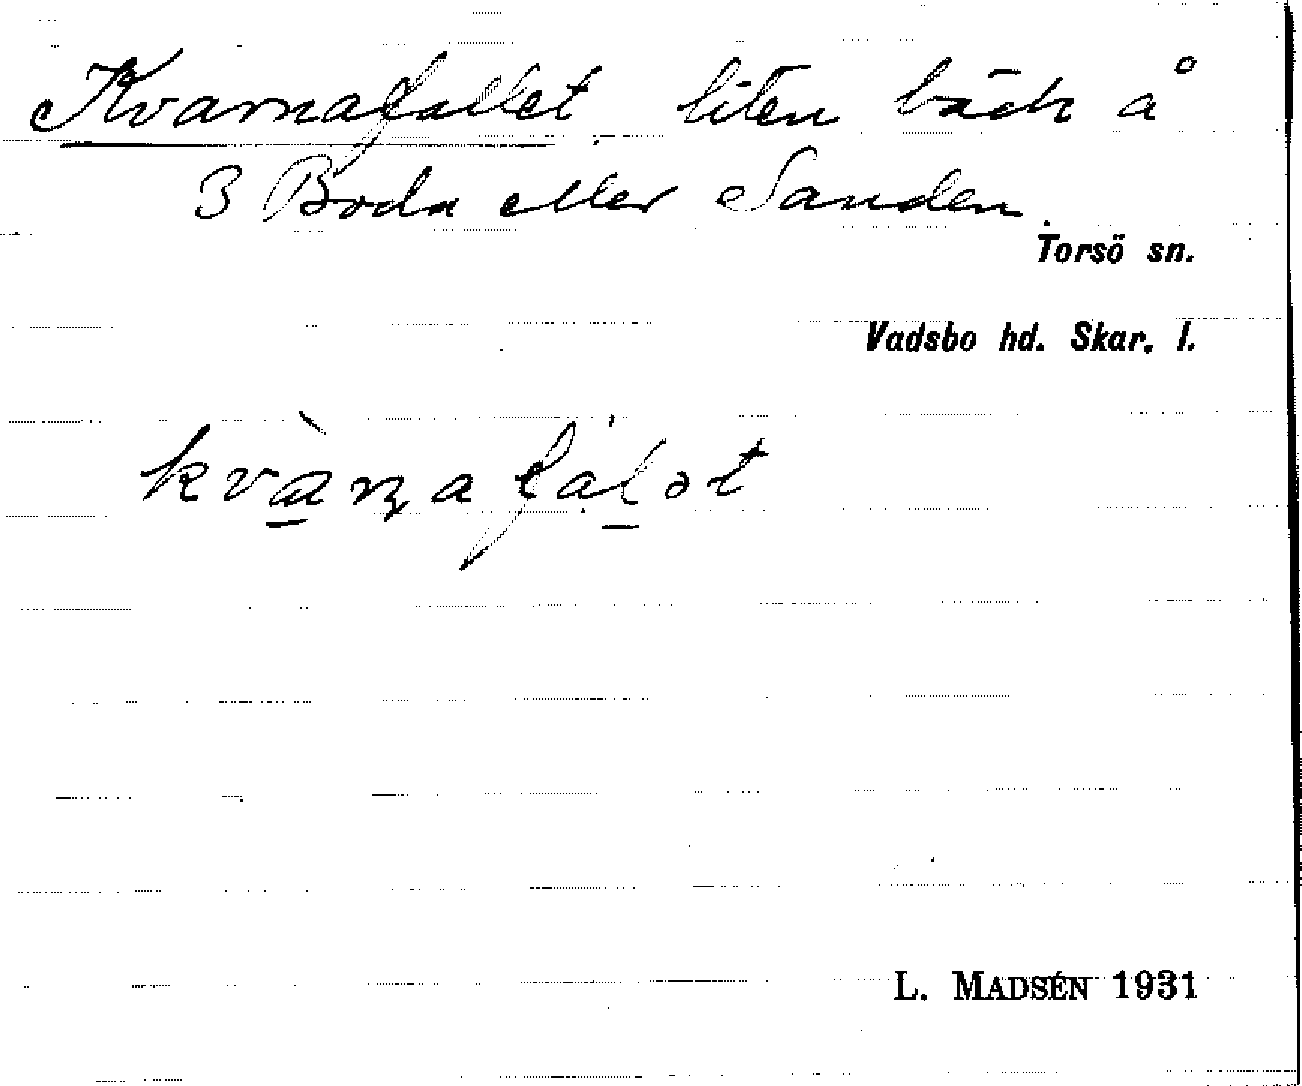 Kvarnafallet liten bäck å
3 Boda eller Sanden.
Torsö sn.
Vadsbo hd. Skar. l.
kvàṇafálət
L. MADSÉN 1931